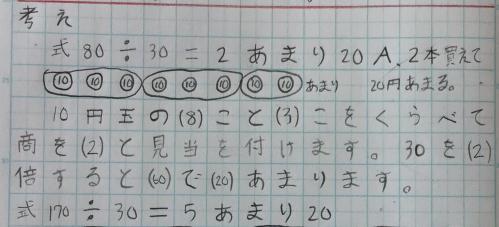 考え
式 80÷30=2 あまり 20 A.2本買えて
⑩⑩⑩⑩⑩⑩⑩⑩あまり 20円あまる。
10円玉の(8)こと(3)こをくらべて
商を(2)と見当を付けます。30を(2)
倍すると(60)で(20)あまります。
式 170÷30=5 あまり 20